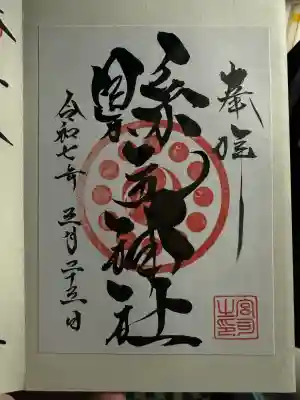 奉拝
縣主神社
令和七年 五月二十五日
宮司之印